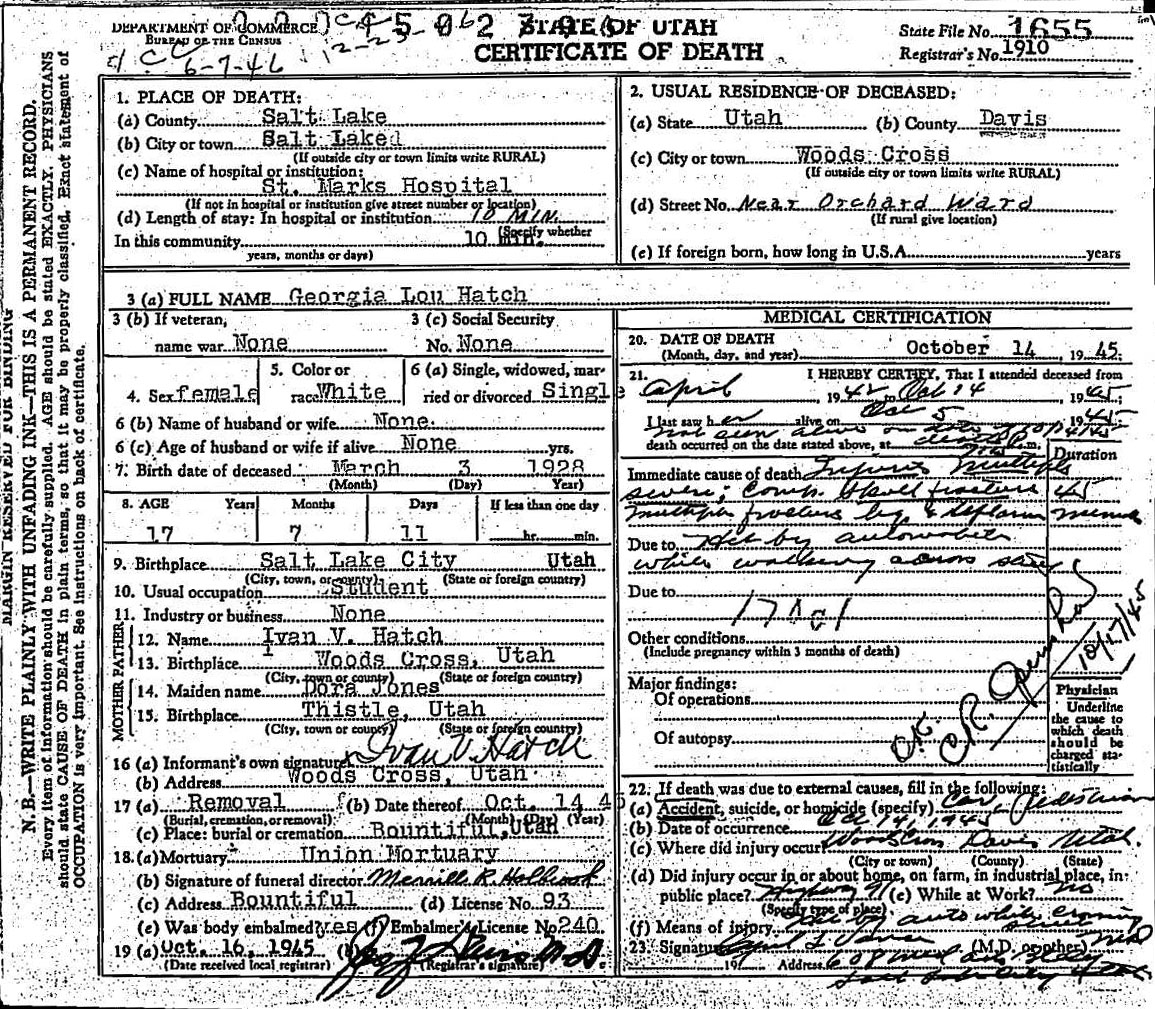 DEPARTMENT OF COMMERCE
BUREAU OF THE CENSUS
6-7-46
STATE OF UTAH
CERTIFICATE OF DEATH
State File No. 1655
Registrar's No. 1910
MARGIN RESERVED FOR BINDING
N. B.—WRITE PLAINLY WITH UNFADING INK—THIS IS A PERMANENT RECORD.
Every item of information should be carefully supplied. AGE should be stated EXACTLY. PHYSICIANS
should state CAUSE OF DEATH in plain terms, so that it may be properly classified. Exact statement of
OCCUPATION is very important. See instructions on back of certificate.
1. PLACE OF DEATH:
(a) County Salt Lake
(b) City or town Salt Laked
(If outside city or town limits write RURAL)
(c) Name of hospital or institution:
St. Marks Hospital
(If not in hospital or institution give street number or location)
(d) Length of stay: In hospital or institution 10 MIN.
(Specify whether
In this community 10 min.
years, months or days)
2. USUAL RESIDENCE OF DECEASED:
(a) State Utah (b) County Davis
(c) City or town Woods Cross
(If outside city or town limits write RURAL)
(d) Street No. Near Orchard Ward
(If rural give location)
(e) If foreign born, how long in U.S.A. years
3 (a) FULL NAME Georgia Lou Hatch
3 (b) If veteran, 3 (c) Social Security
name war None No. None
5. Color or 6 (a) Single, widowed, mar-
4. Sex female race White ried or divorced Single
6 (b) Name of husband or wife None
6 (c) Age of husband or wife if alive None yrs.
7. Birth date of deceased March 3 1928
(Month) (Day) Year)
8. AGE Years Months Days If less than one day
17 7 11 hr. min.
9. Birthplace Salt Lake City Utah
(City, town, or county) (State or foreign country)
10. Usual occupation Student
11. Industry or business None
FATHER
12. Name Ivan V. Hatch
13. Birthplace Woods Cross, Utah
(City, town or county) (State or foreign country)
MOTHER
14. Maiden name Dora Jones
15. Birthplace Thistle, Utah
(City, town or county) (State or foreign country)
16 (a) Informant's own signature Ivan V. Hatch
(b) Address Woods Cross, Utah
17 (a) Removal (b) Date thereof Oct. 14 45
(Burial, cremation, or removal) (Month) (Day) (Year)
(c) Place: burial or cremation Bountiful, Utah
18. (a) Mortuary Union Mortuary
(b) Signature of funeral director Merrill R. Holbrook
(c) Address Bountiful (d) License No. 93
(e) Was body embalmed yes (f) Embalmer's License No 240
19 (a) Oct. 16, 1945 (b)
(Date received local registrar) (Registrar's signature)
MEDICAL CERTIFICATION
20. DATE OF DEATH
(Month, day, and year) October 14, 1945:
21. I HEREBY CERTIFY, That I attended deceased from
April 19 to Oct 14 1945
I last saw her alive on Oct 5 1945
not seen alive on
death occurred on the date stated above, at m.
Duration
Immediate cause of death Injuries multiple
severe; Comp. skull fracture
multiple fracture leg &
Due to Hit by automobile
while walking across street
Due to
Other conditions
(Include pregnancy within 3 months of death)
Major findings:
Of operations
Of autopsy
O.K.
10/17/45
Physician
Underline
the cause to
which death
should be
charged sta-
tistically
22. If death was due to external causes, fill in the following:
(a) Accident, suicide, or homicide (specify) Car Pedestrian
(b) Date of occurrence Oct 14, 1945
(c) Where did injury occur Woods Cross Davis Utah.
(City or town) (County) (State)
(d) Did injury occur in or about home, on farm, in industrial place, in
public place? Highway 91 (e) While at Work? No
(Specify type of place)
(f) Means of injury Hit by auto while crossing
street
23. Signature (M.D. or other) MD
19 Address